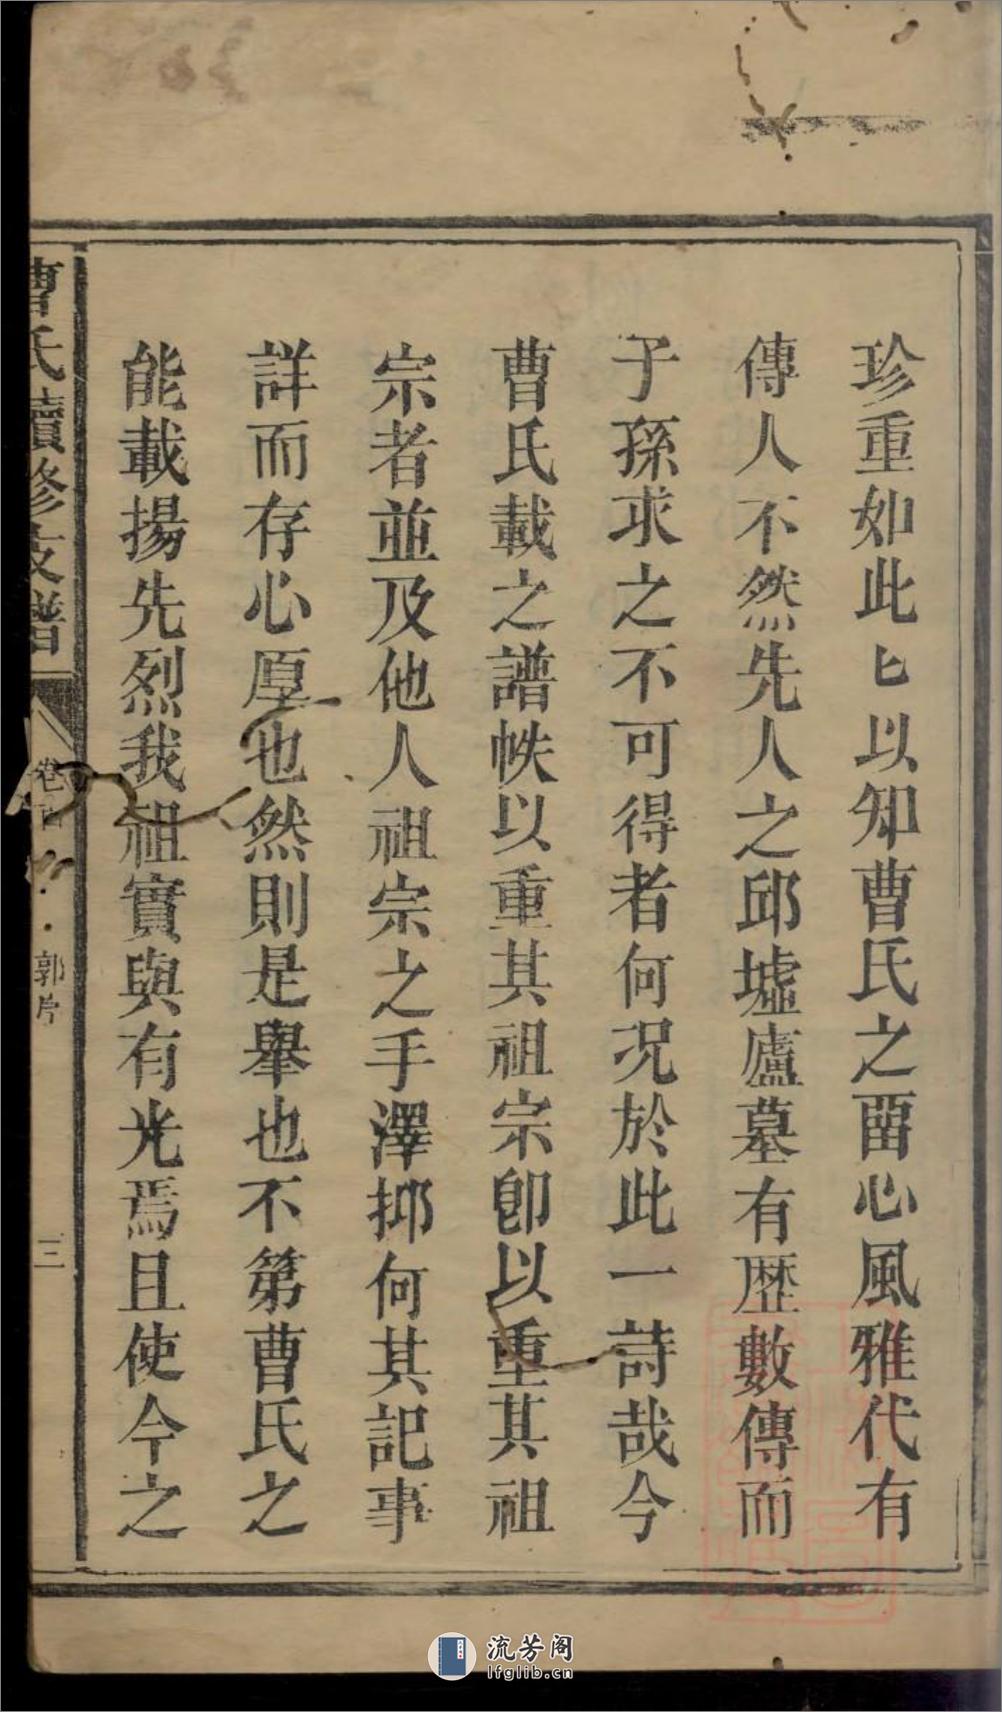 珍重如此匕以知曹氏之畱心風雅代有
傳人不然先人之邱墟廬墓有歴數傳而
子孫求之不可得者何况於此一詩哉今
曹氏載之譜帙以重其祖宗卽以重其祖
宗者並及他人祖宗之手澤抑何其記事
詳而存心厚也然則是舉也不第曹氏之
能載揚先烈我祖實與有光焉且使今之
曹氏續修支譜
卷首
郭序
三
流芳阁
lfglib.cn